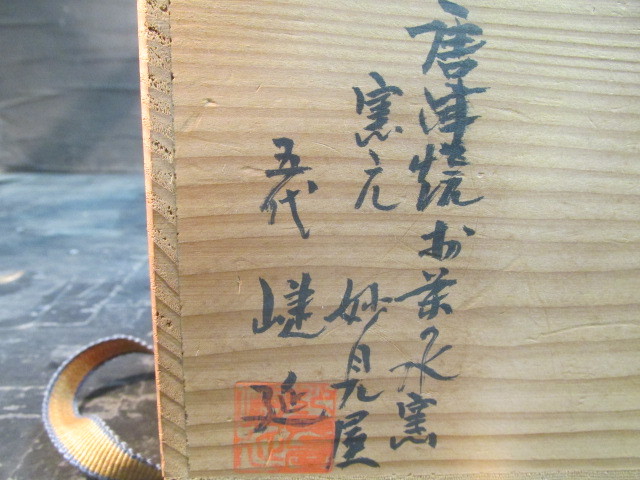 唐津焼お茶の水窯
窯元 妙見屋
五代 嶘延